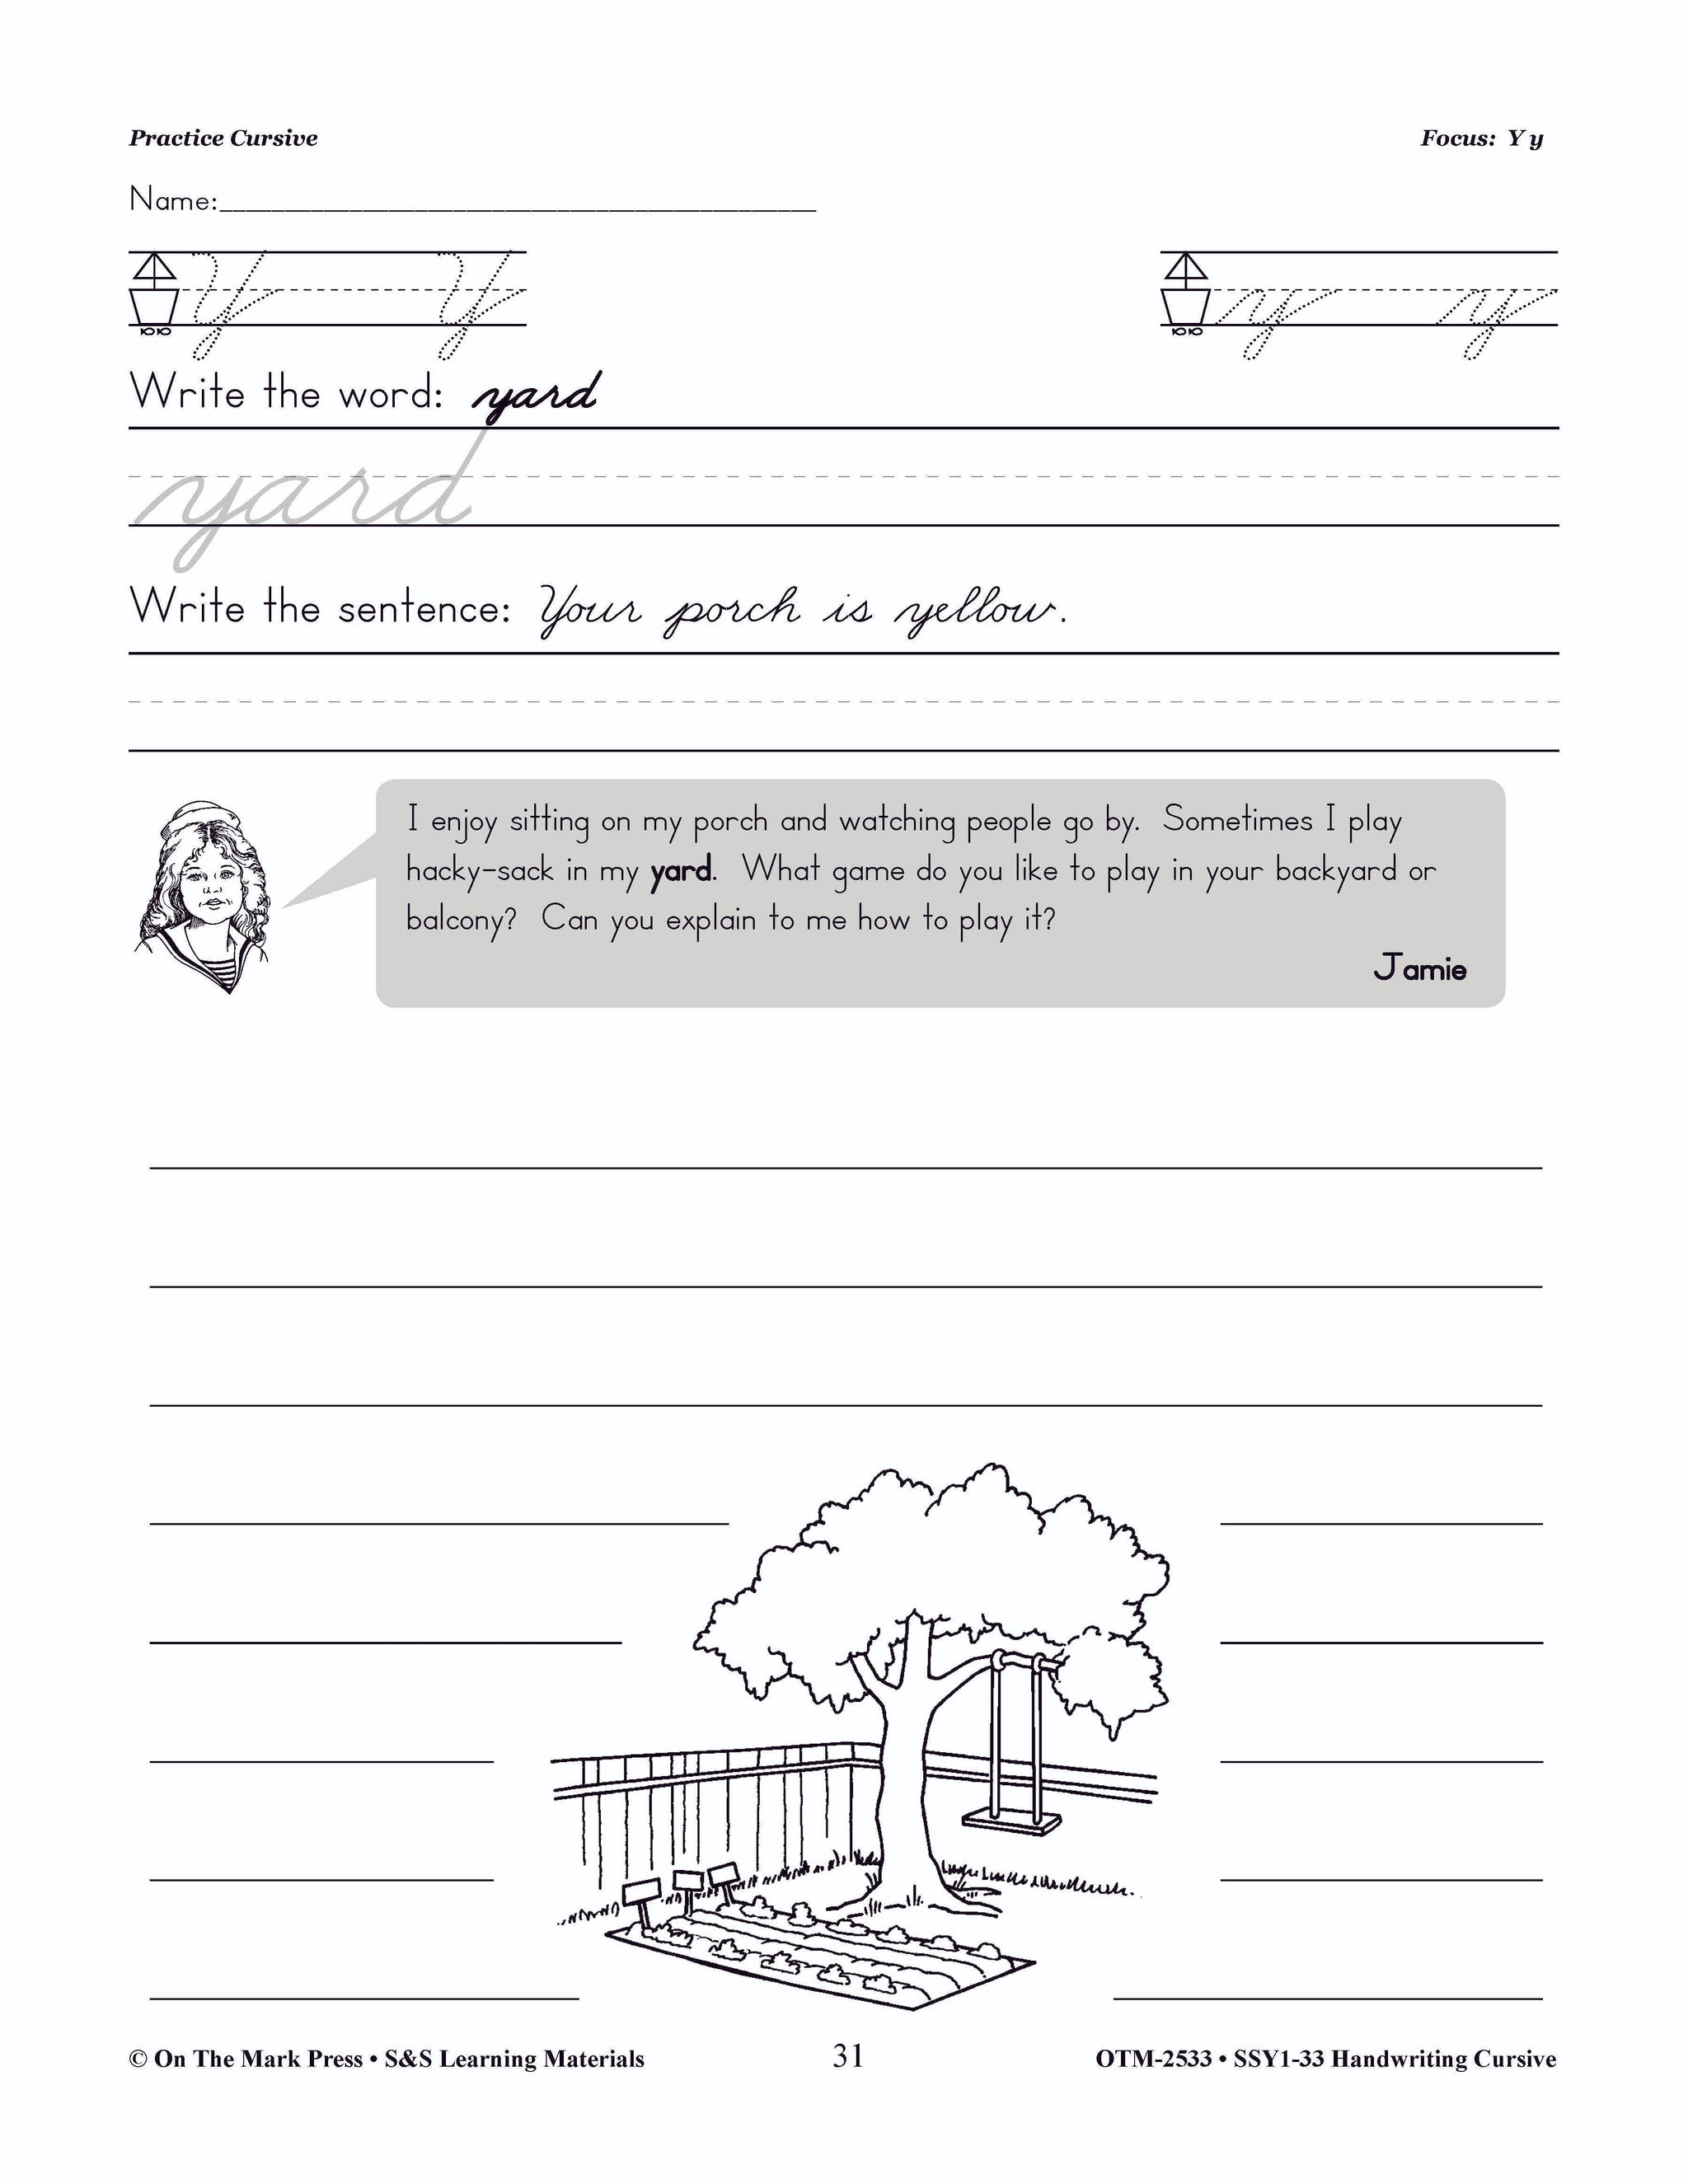 Practice Cursive Focus: Y y
Name:
Y Y y y
Write the word: yard
yard
Write the sentence: Your porch is yellow.
I enjoy sitting on my porch and watching people go by. Sometimes I play
hacky-sack in my yard. What game do you like to play in your backyard or
balcony? Can you explain to me how to play it?
Jamie
© On The Mark Press • S&S Learning Materials 31 OTM-2533 • SSY1-33 Handwriting Cursive